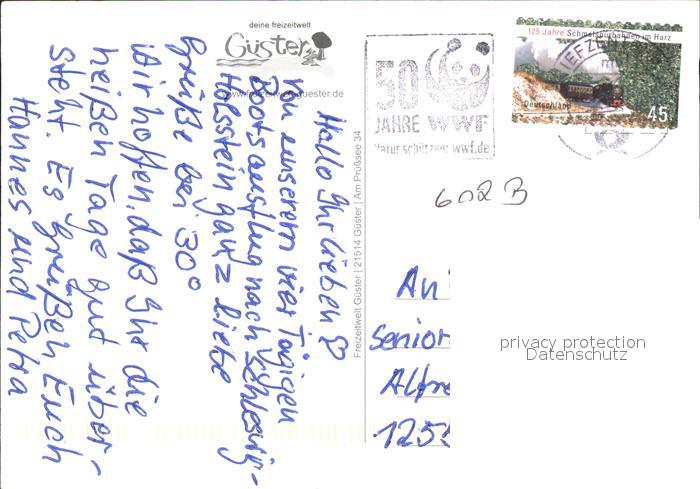 deine freizeitwelt
Güster
www.freizeitwelt-guester.de
Hallo Ihr Lieben
von unserem vier Tägigen
Bootsausflug nach Schleswig-
Holsstein ganz liebe
Grüße bei 30°
Wir hoffen, daß Ihr die
heißen Tage gut über-
steht. Es grüßen Euch
Hannes und Petra
Freizeitwelt Güster | 21514 Güster | Am Prüßsee 34
50
JAHRE WWF
Natur schützen: wwf.de
125 Jahre Schmalspurbahnen im Harz
Deutschland
45
602 B
An
Senior
Alfre
125
privacy protection
Datenschutz